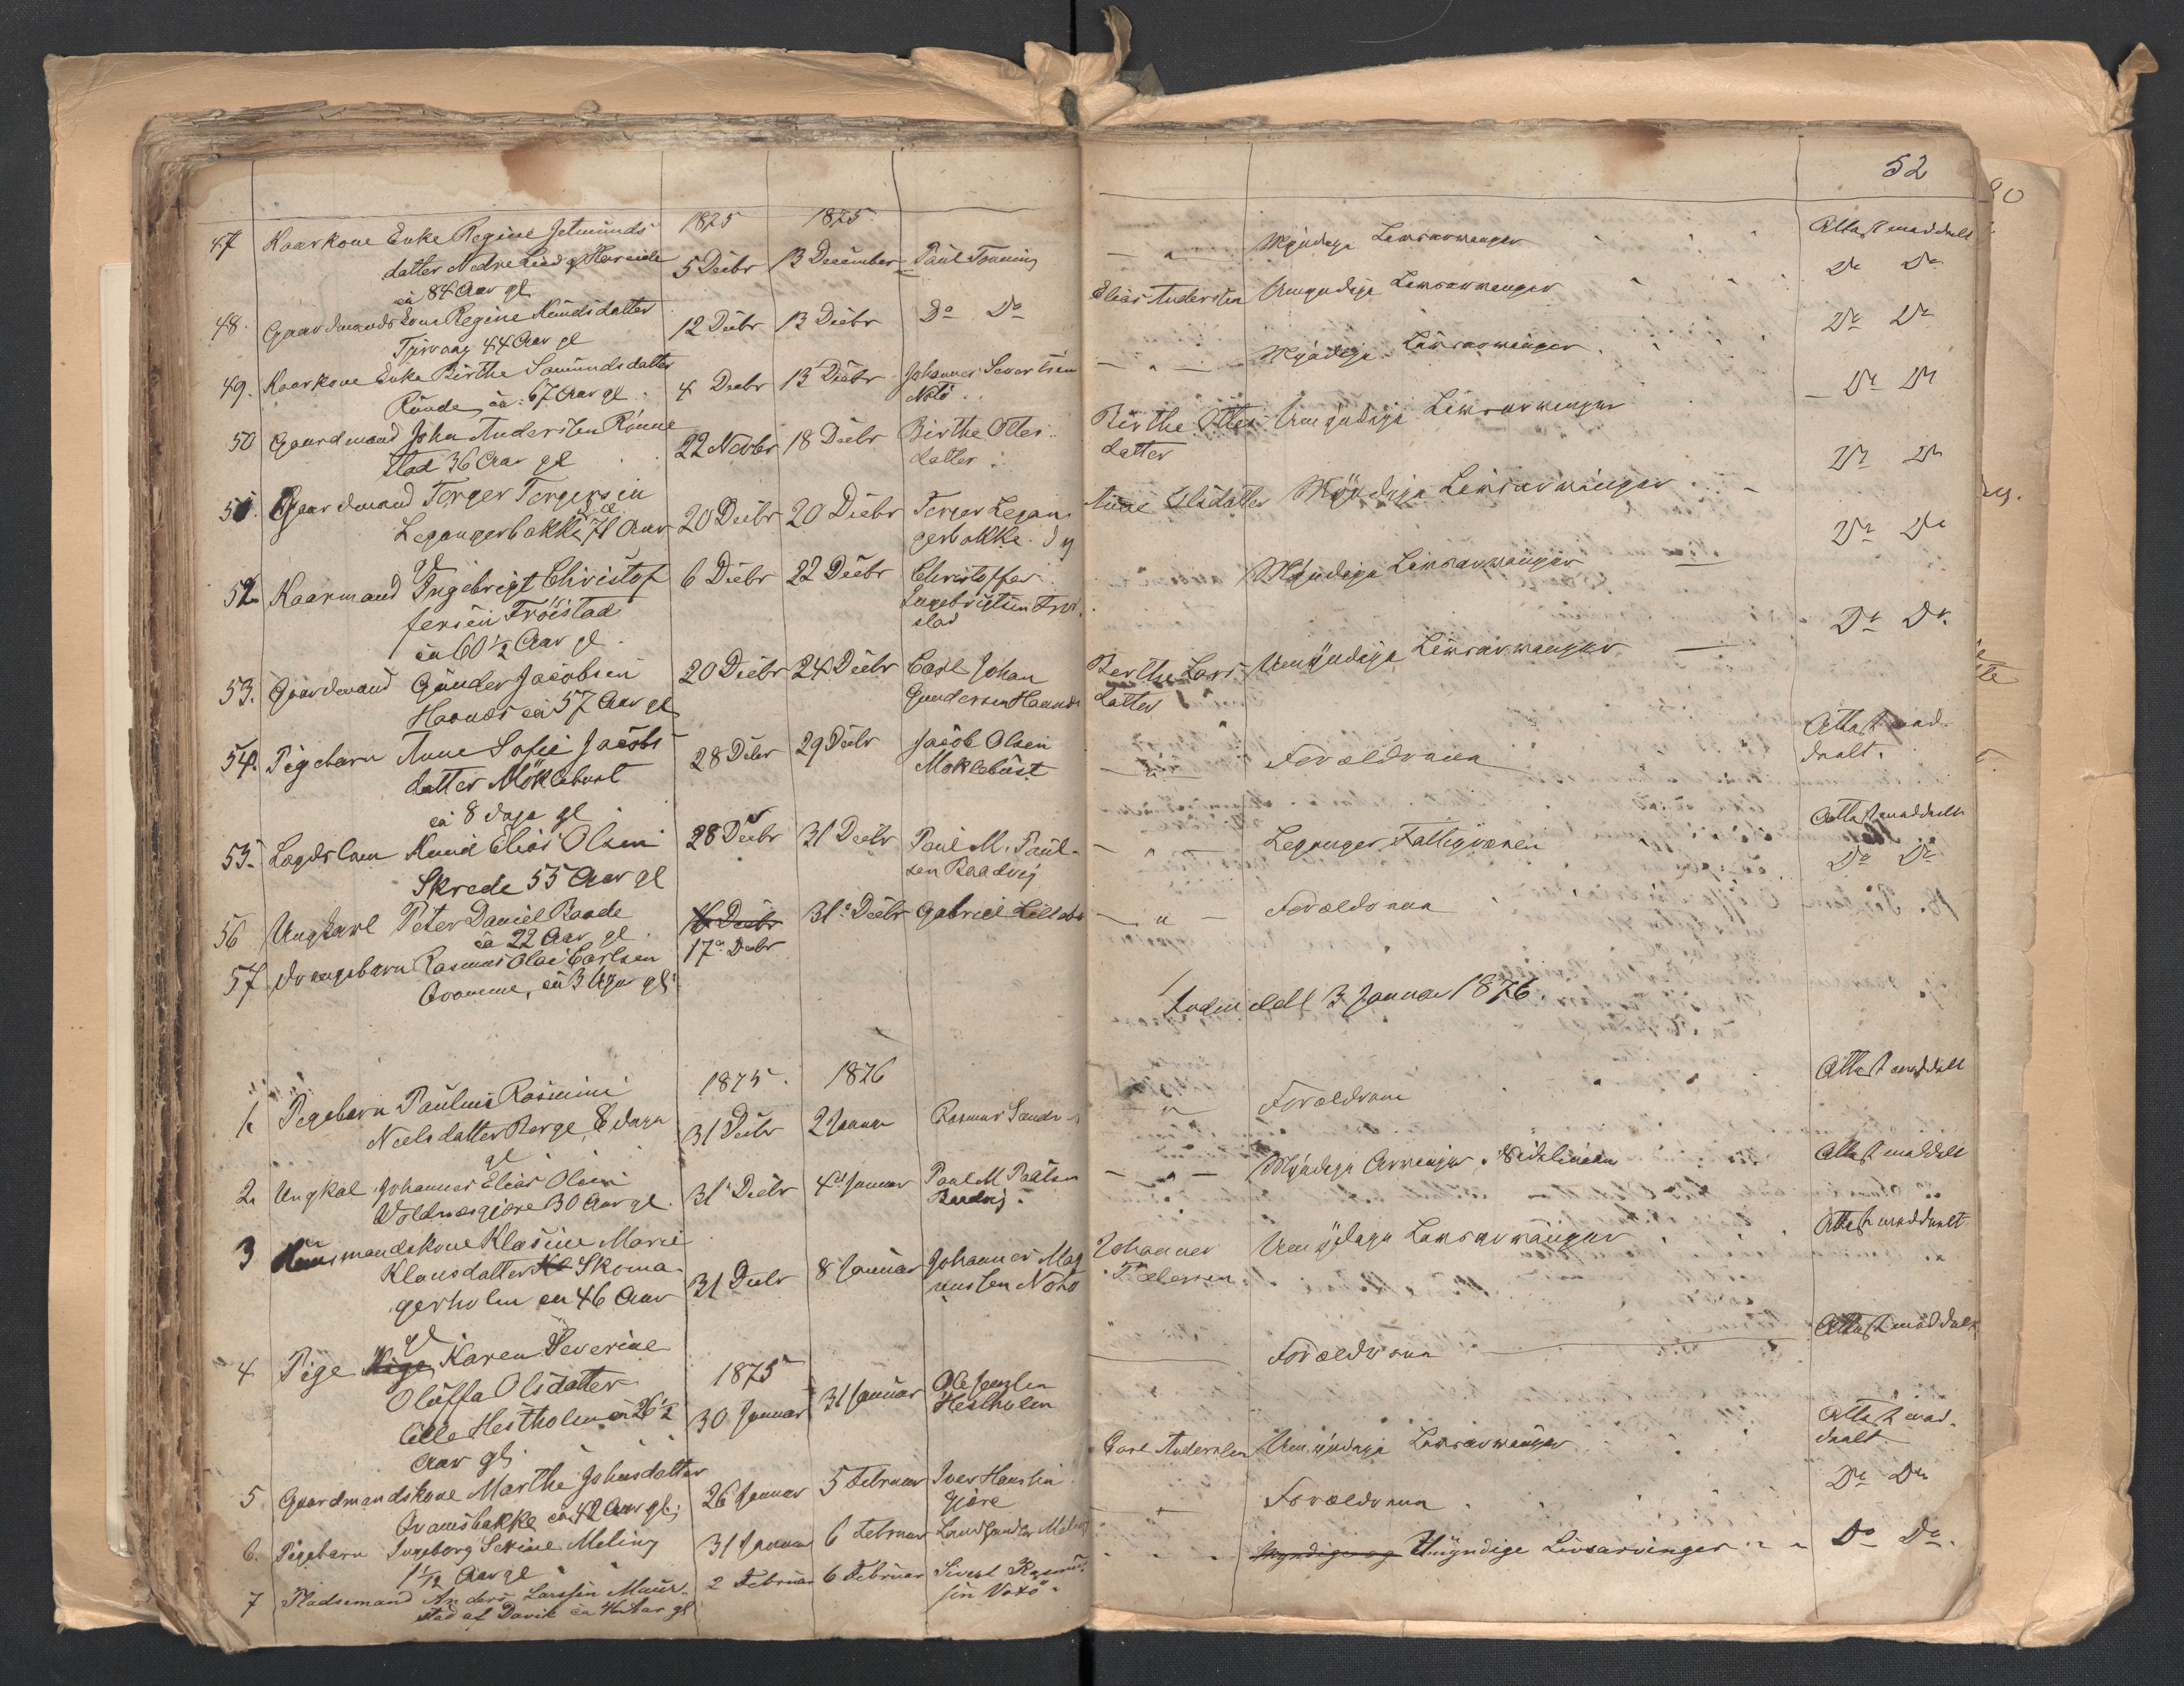 52
1875 1875
47 Kaarkone Enke Regine Jetmunds
datter Nedre Lied af Hareide
ca 84 Aar gl
5 Decbr 13 December Paul Tonning
Myndige Livsarvinger Attest meddelt
48. Gaardmandskone Regine Knudsdatter
Tjervaag 44 Aar gl
12 Decbr 13 Decbr Do Do
Elias Andersen Umyndige Livsarvinger Do Do
49. Kaarkone Enke Birthe Samundsdatter
Runde, ca: 67 Aar gl
4 Decbr 13 Decbr Johannes Severtsen
Notø
Myndige Livsarvinger Do Do
50 Gaardmand John Andersen Rønne
stad 36 Aar gl
22 Novbr 18 Decbr Birthe Ottes
datter
Birthe Ottes Umyndige Livsarvinger Do Do
datter
51. Gaardmand Torger Torgersen
Legangerbakke, 71 Aar
gl
20 Decbr 20 Decbr Torger Legan
gerbakke
Anne Elisdatter Myndige Livsarvinger Do Do
52 Kaarmand Ingebrigt Christof
fersen Frøistad
ca 60 1/2 Aar gl.
6 Decbr 22 Decbr Christoffer
Ingebrigtsen Frøi
stad
Myndige Livsarvinger Do Do
53. Gaardmand Gunder Jacobsen
Haanæs ca 57 Aar gl
20 Decbr 24 Decbr Carl Johan
Gundersen Haanæs
Berthe Lars Umyndige Livsarvinger Do Do
datter
54. Pigebarn Anne Sofie Jacobs
datter Møklebust
ca 8 dage gl
28 Decbr 29 Decbr Jacob Olsen
Moklebust
Forældrene Attest med
deelt.
55. Lægdslem Knud Elias Olsen
Skrede 55 Aar gl
28 Decbr 31 Decbr Paul M. Paul-
sen Raadvig
Leganger Fattigvæsen Attest meddeelt
56 Ungkarl Peter Daniel Raade
ca 22 Aar gl.
16 Decbr
17de Decbr
31te Decbr Gabriel Lillebø
Forældrene Do Do
57 Drengebarn Rasmus Olai Carlsen
Kvamme, ca 3 Uger gl:
Indmeldt 3 Januar 1876
1875. 1876
1. Pigebarn Pauline Rasmine
Neelsdatter Berge, 8 dage
gl
31 Decbr 2 Januar Rasmus Sande
Forældrene Attest meddelt
2. Ungkal Johannes Elias Olsen
Voldnæsgjøre 30 Aar gl.
31te Decbr 4de Januar Paul M Paulsen
Raadvig.
Myndige Arvinger. Sidelinien Attest meddelt
3 Huusmandskone Klasine Marie
Klausdatter Skoma-
gerholm ca 46 Aar
gl
31 Decbr 8 Januar Johannes Mag
nussen Notø
Johannes Umyndige Livsarvinger Attest meddeelt
Pedersen
4 Pige Karen Severine
Oluffa Olsdatter
Lille Hestholm ca 26 1/2
Aar gl;
1875
30 Januar 31 Januar Ole Jensen
Hestholm
Forældrene Attest meddelt
5. Gaardmandskone Marthe Johnsdatter
Kvamsbakke ca 42 Aar gl;
26 Januar 5 Februar Iver Hansen
Gjøre
Carl Andersen Umyndige Livsarvinger Attest med-
deelt
6. Pigebarn Ingeborg Serine Meling
1 1/12 Aar gl
31 Januar 6 Februar Landhandler Meling
Forældrene Do Do
7 Pladsemand Anders Larssen Maur-
stad af Davik ca 46 Aar gl
2 Februar 6 Februar Sivert Rasmus
sen Vattø
Myndige og Umyndige Livsarvinger Do Do.